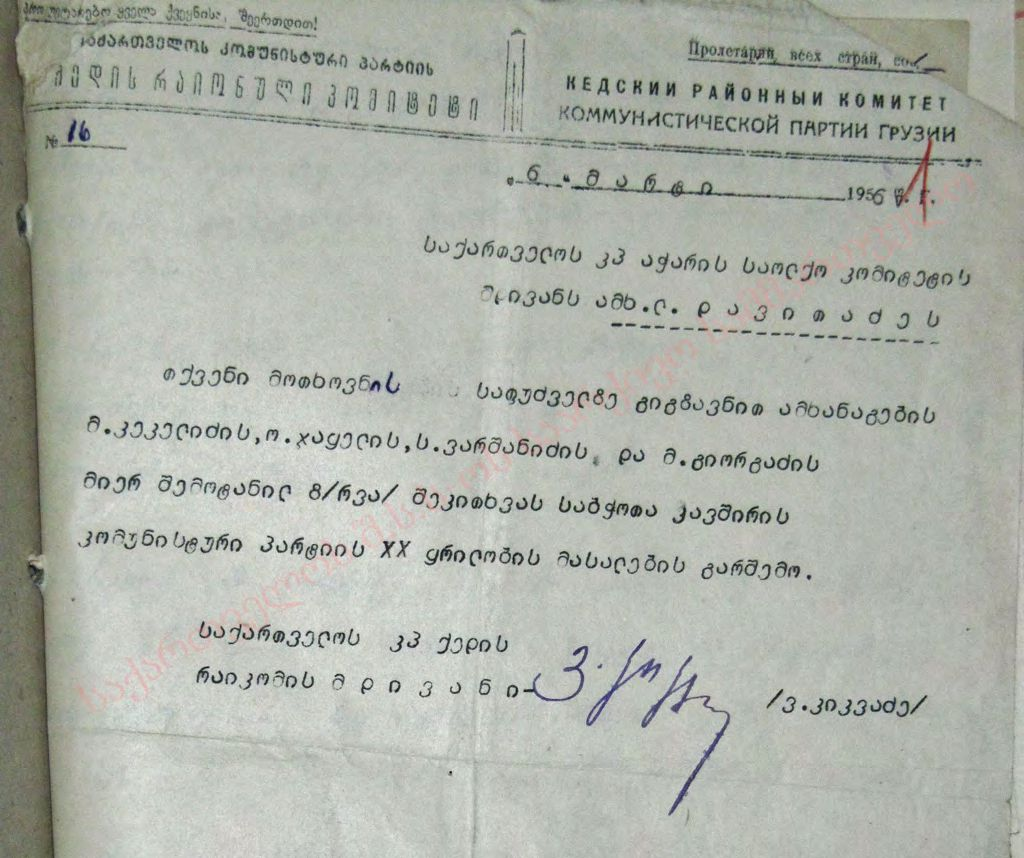 პროლეტარებო ყველა ქვეყნისა, შეერთდით!
საქართველოს კომუნისტური პარტიის
ქედის რაიონული კომიტეტი
Пролетарии всех стран,
КЕДСКИЙ РАЙОННЫЙ КОМИТЕТ
КОММУНИСТИЧЕСКОЙ ПАРТИИ ГРУЗИИ
№ 16
„ 6 “ მარტი 1956 წ. г.
საქართველოს კპ აჭარის საოლქო კომიტეტის
მდივანს ამხ.ლ. დავითაძეს
თქვენი მოთხოვნის საფუძველზე გიგზავნით ამხანაგების
მ.კეკელიძის,ო.ჯაყელის,ს.ვარშანიძის, და მ.გიორგაძის
მიერ შემოტანილ 8/რვა/ შეკითხვას საბჭოთა კავშირის
კომუნისტური პარტიის XX ყრილობის მასალების გარშემო.
საქართველოს კპ ქედის
რაიკომის მდივანი-
/ვ.კიკვაძე/